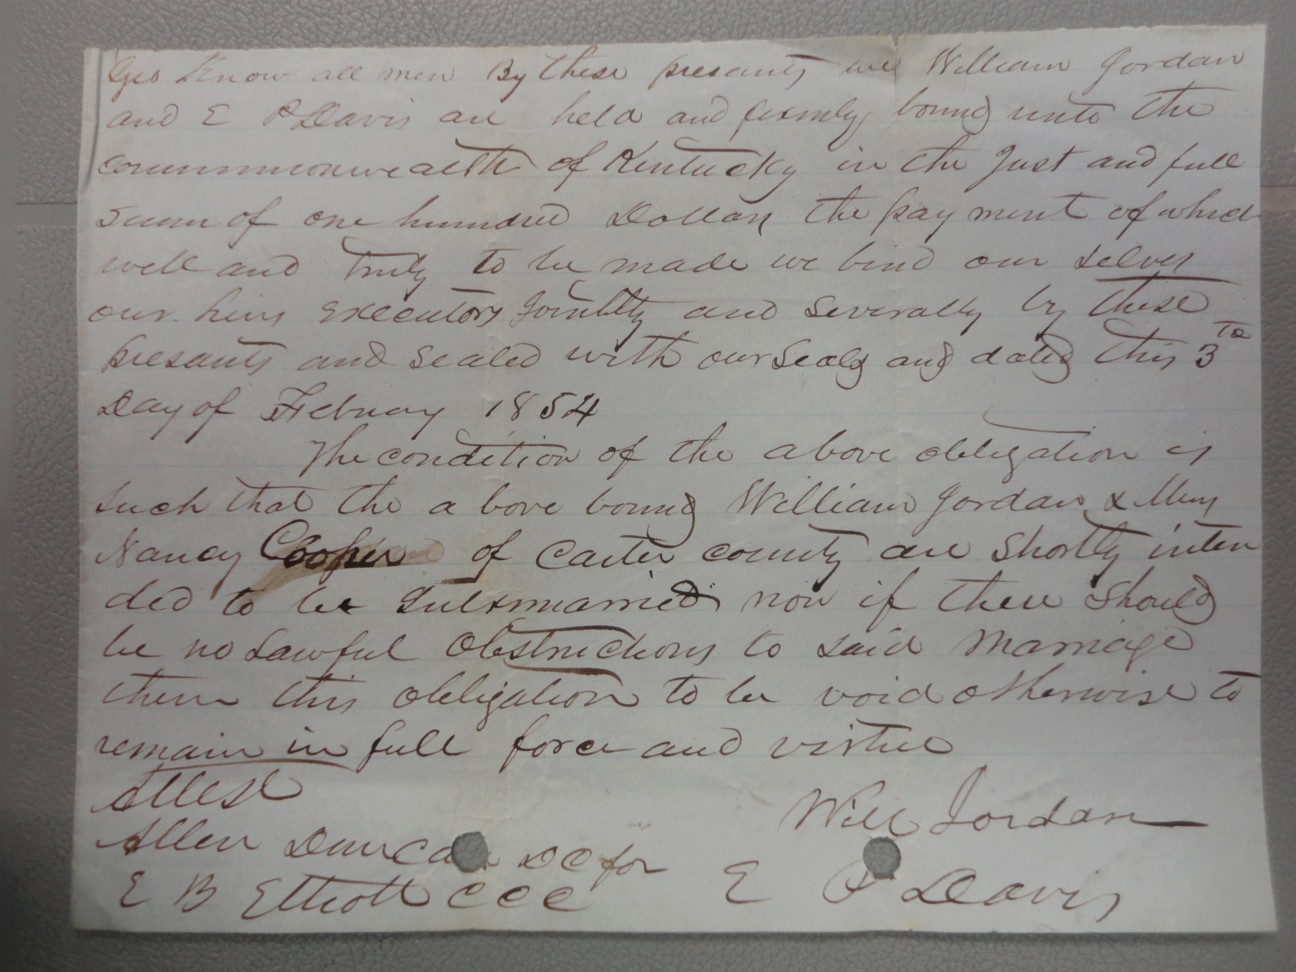 Know all men By these presants we William Jordan
and E P Davis are held and firmly bound unto the
commmonwealth of Kentucky in the Just and full
sum of one hundred Dollars the payment of which
well and truly to be made we bind our selves
our heirs Executors Jointly and Severally by these
presants and Sealed with our Seals and dated this 3
Day of Februay 1854
The condition of the above obligation is
such that the a bove bound William Jordan &
Nancy Cooper of Carter county are Shortly inten
ded to be Intermarried now if there Should
be no Lawful Obstructions to said Marriage
then this obligation to be void otherwise to
remain in full force and virtue
Attest
Will Jordan
Allen Duncan DC for
E P Davis
E B Elliott CCC